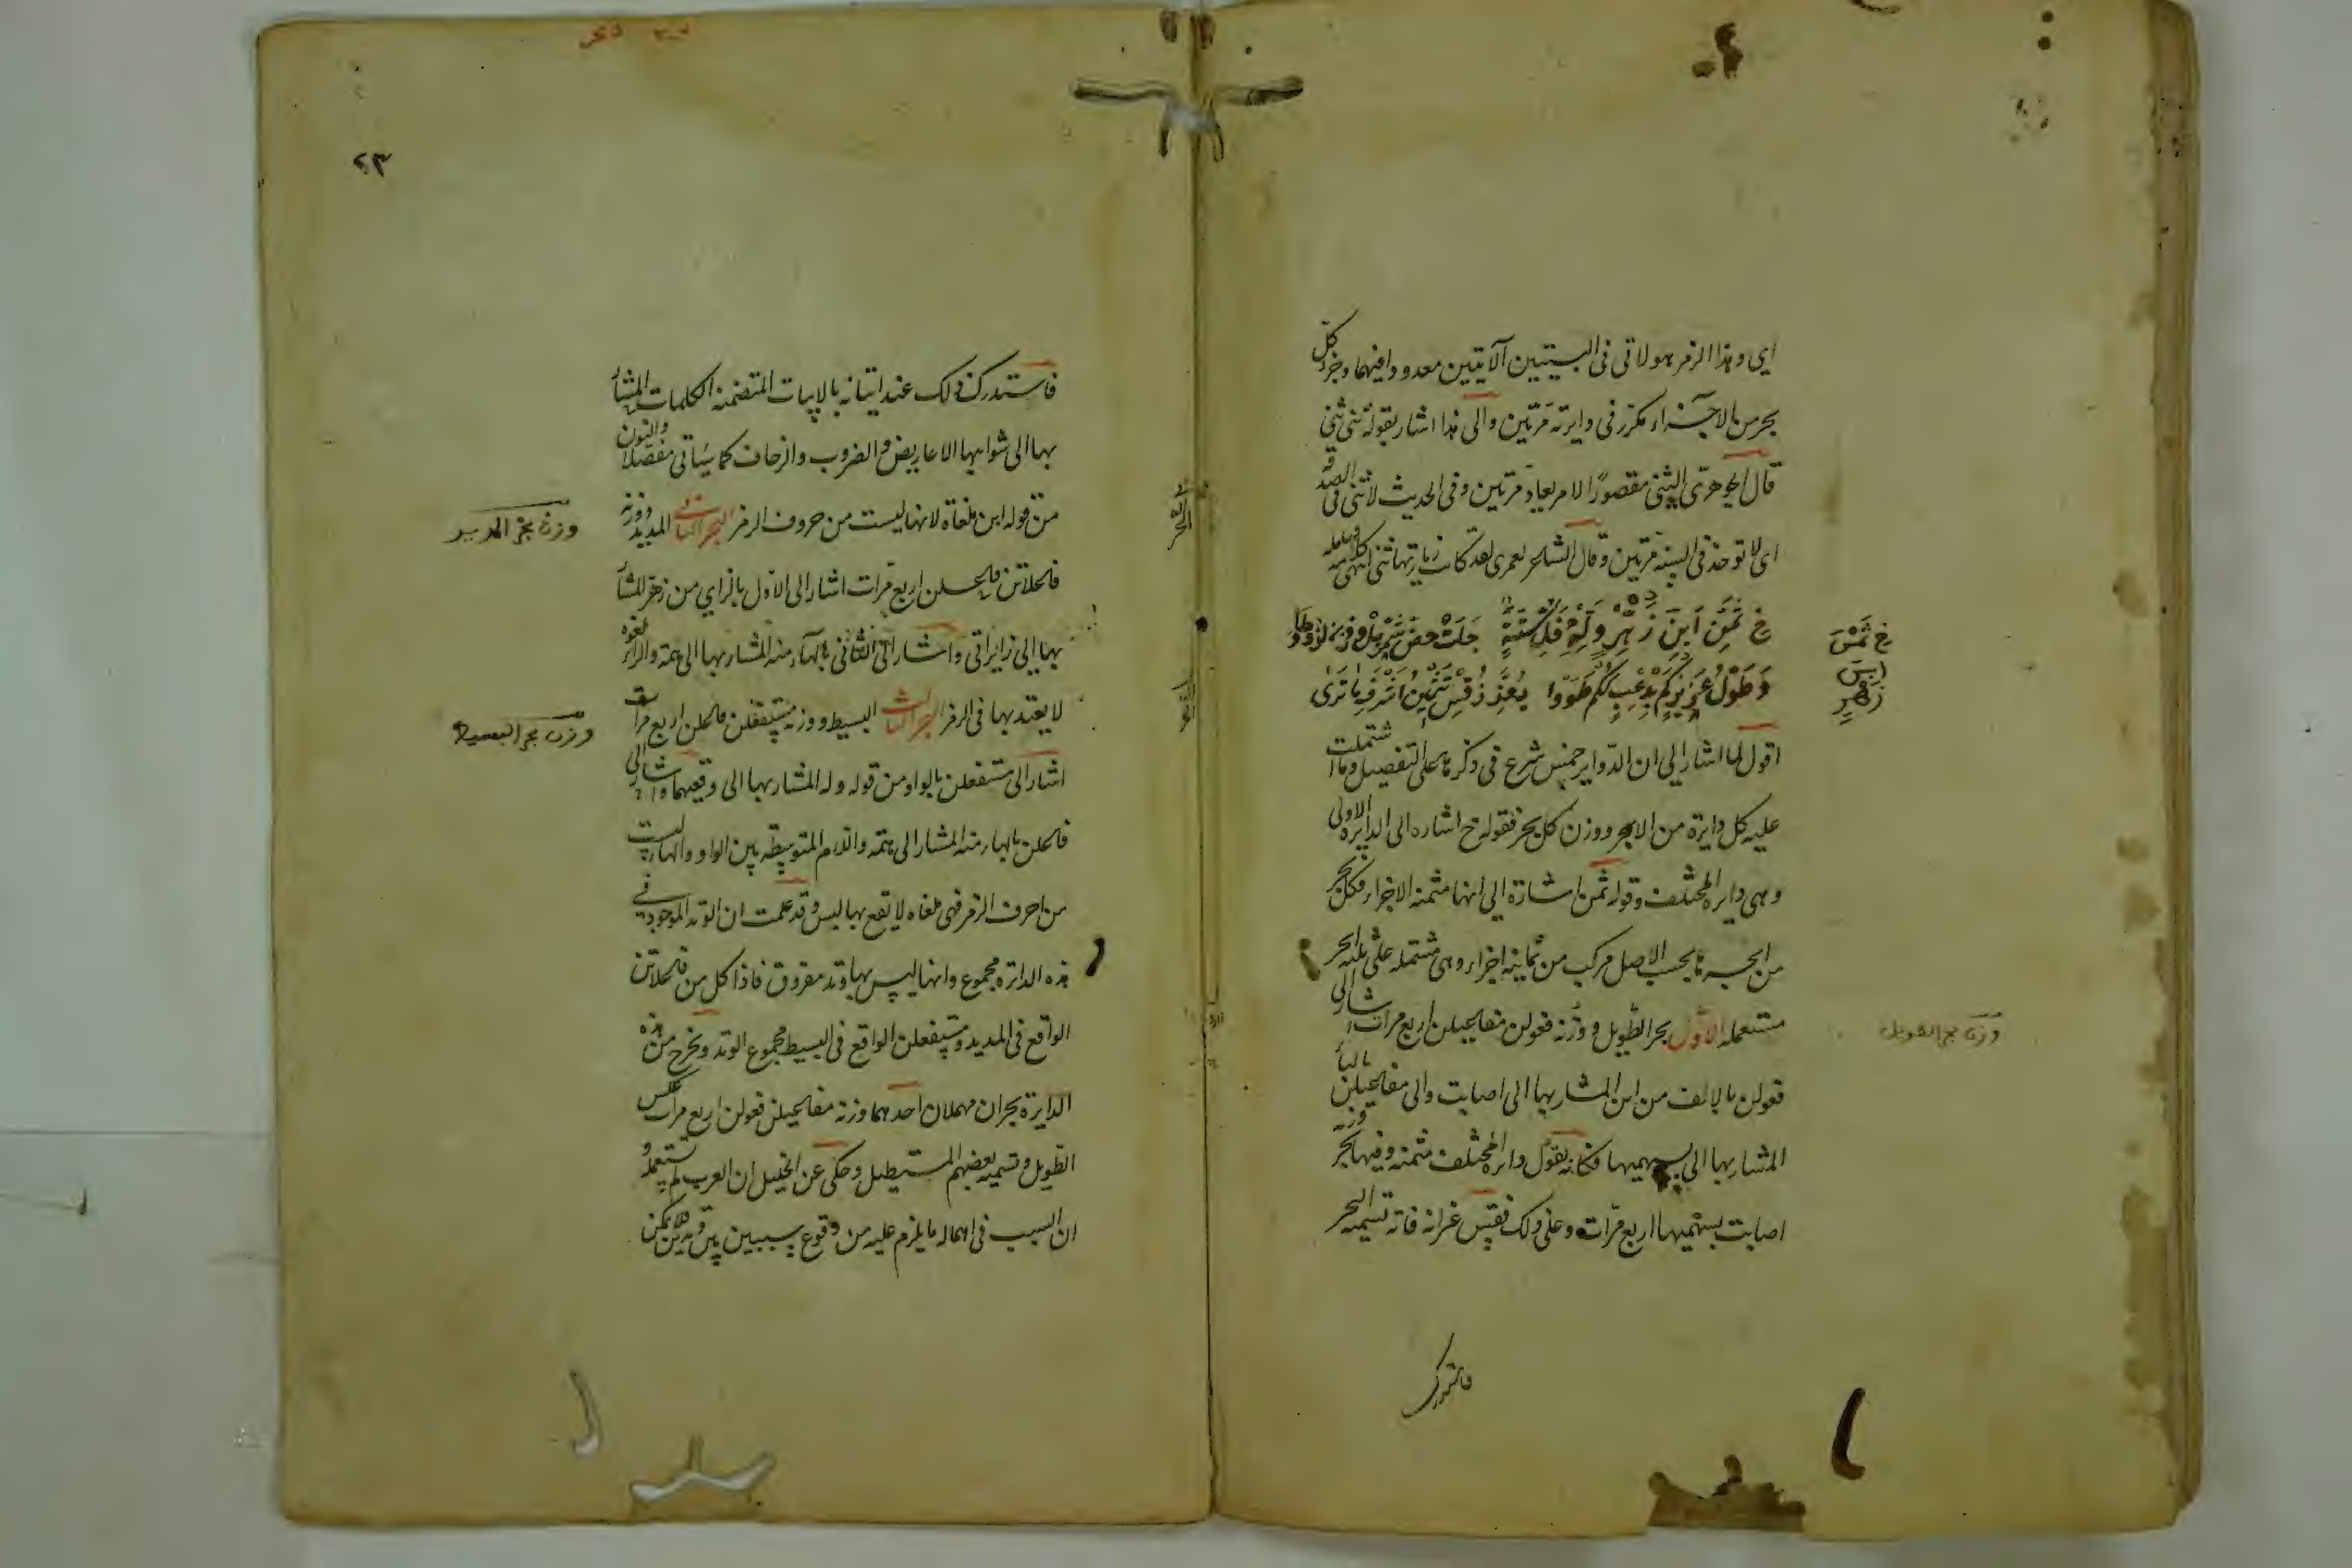 اي وهذا الرمز هو لاتي في البيتين الآتيتين معدودا فيهما وجزء كل
بحر من الاجزاء مكرر في دايرته مرتين والى هذا اشار بقوله ثنى ثنى
قال الجوهرى الثنى مقصورًا الامر يعاد مرتين وفى الحديث لا ثنى فى الصدقة
اى لا توخذ فى السنة مرتين وقال الشاعر لعمرى لقد كانت زيارتها ثنى انتهى
خ ثمن ابن زهر وله فلستة جلت حض
وطول عزيزكم بدعبكم طووا يعزز قس تثمين اشرف ما ترى
اقول لما اشار الى ان الدواير خمس شرع فى ذكرها على التفصيل وما اشتملت
عليه كل دايرة من الابحر ووزن كل بحر فقوله خ اشاره الى الدايره الاولى
وهى دايرة المختلف وقوله ثمن اشارة الى انها مثمنة الاجزاء فكل بحر
من ابحرها بحسب الاصل مركب من ثمانية اجزاء وهى مشتمله على ثلثة ابحر
مستعمله الاول بحر الطويل ووزنه فعولن مفاعيلن اربع مرات اشار الى
فعولن بالالف من ابن المشار بها الى اصابت والى مفاعيلن بالباء
المشار بها الى بسهميها فكانه يقول دايرة المختلف مثمنه وفيها بحر وزنه
اصابت بسهميها اربع مرات وعلى ذلك فقس غير انه فاته تسمية البحر
فاستدرك
خ ثمن
ابن
زهر
وزن بحر الطويل
٢٣
فاستدرك ذلك عند اتيانه بالابيات المتضمنة الكلمات المشار
بها الى شواهيها الاعاريض والضروب والزحاف كما سياتى مفصلا والنون
من قوله ابن ملغاة لانها ليست من حروف الرمز البحر الثانى المديد ووزنه
فاعلاتن فاعلن اربع مرات اشار الى الاول بالزاي من زهر المشار
بها الى زايراتى واشار الى الثانى بالهاء منه المشار بها الى همة والراء لغوه
لا يعتد بها فى الرمز البحر الثالث البسيط ووزنه مستفعلن فاعلن اربع مرات
اشار الى مستفعلن بالواو من قوله وله المشار بها الى وقيعهما واشار الى
فاعلن بالهاء منه المشار الى همته واللام المتوسطه بين الواو والهاء ليست
من احرف الرمز فهى ملغاه لا يقع بها لبس وقد علمت ان الوتد الموجود فى
هذه الدائره مجموع وانها ليس بها وتد مفروق فاذا كل من فاعلاتن
الواقع فى المديد ومستفعلن الواقع فى البسيط مجموع الوتد ونخرج من هذه
الدايرة بحران مهملان احدهما وزنه مفاعيلن فعولن اربع مرات عكس
الطويل وتسميه بعضهم المستطيل وحكى عن الخليل ان العرب لم تستعمله و
ان السبب فى اهماله ما يلزم عليه من وقوع سببين بين وتدين
وزن بحر المديد
وزن بحر البسيط